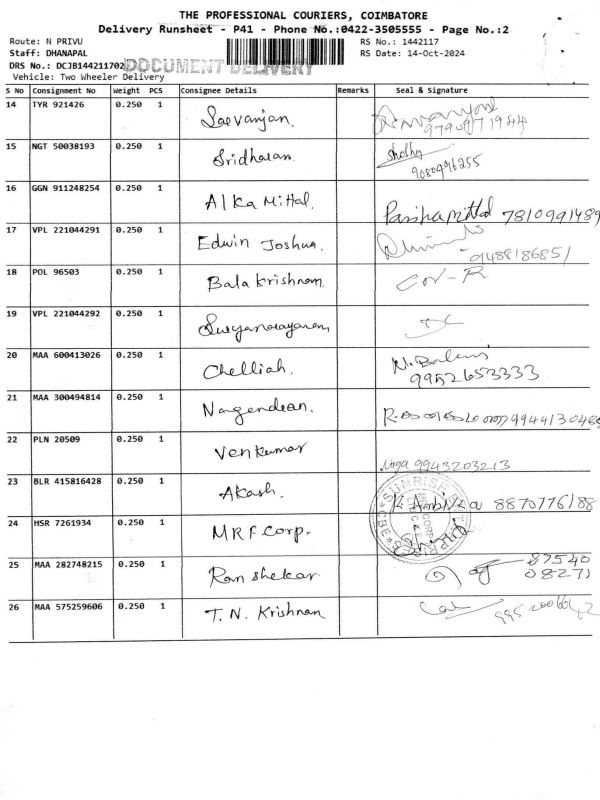 THE PROFESSIONAL COURIERS, COIMBATORE
Delivery Runsheet - P41 - Phone No.:0422-3505555 - Page No.:2
Route: N PRIVU RS No.: 1442117
Staff: DHANAPAL RS Date: 14-Oct-2024
DRS No.: DCJB144211702 DOCUMENT DELIVERY
Vehicle: Two Wheeler Delivery
S No Consignment No Weight PCS Consignee Details Remarks Seal & Signature
14 TYR 921426 0.250 1 Saevanjan.
15 NGT 50038193 0.250 1 Sridharan.
9080996255
16 GGN 911248254 0.250 1 Alka Mittal.
Parishamittal 7810991489
17 VPL 221044291 0.250 1 Edwin Joshua.
9488186851
18 POL 96503 0.250 1 Bala Krishnam.
19 VPL 221044292 0.250 1 Suryanarayanan
20 MAA 600413026 0.250 1 Chelliah. N. Balam
9952653333
21 MAA 300494814 0.250 1 Nagendran.
22 PLN 20509 0.250 1 Venkumar
Naga 9943203213
23 BLR 415816428 0.250 1 Akash. K Ambika 8870776188
24 HSR 7261934 0.250 1 MRF Corp.
25 MAA 282748215 0.250 1 Ranshekar 87540
08271
26 MAA 575259606 0.250 1 T. N. Krishnan